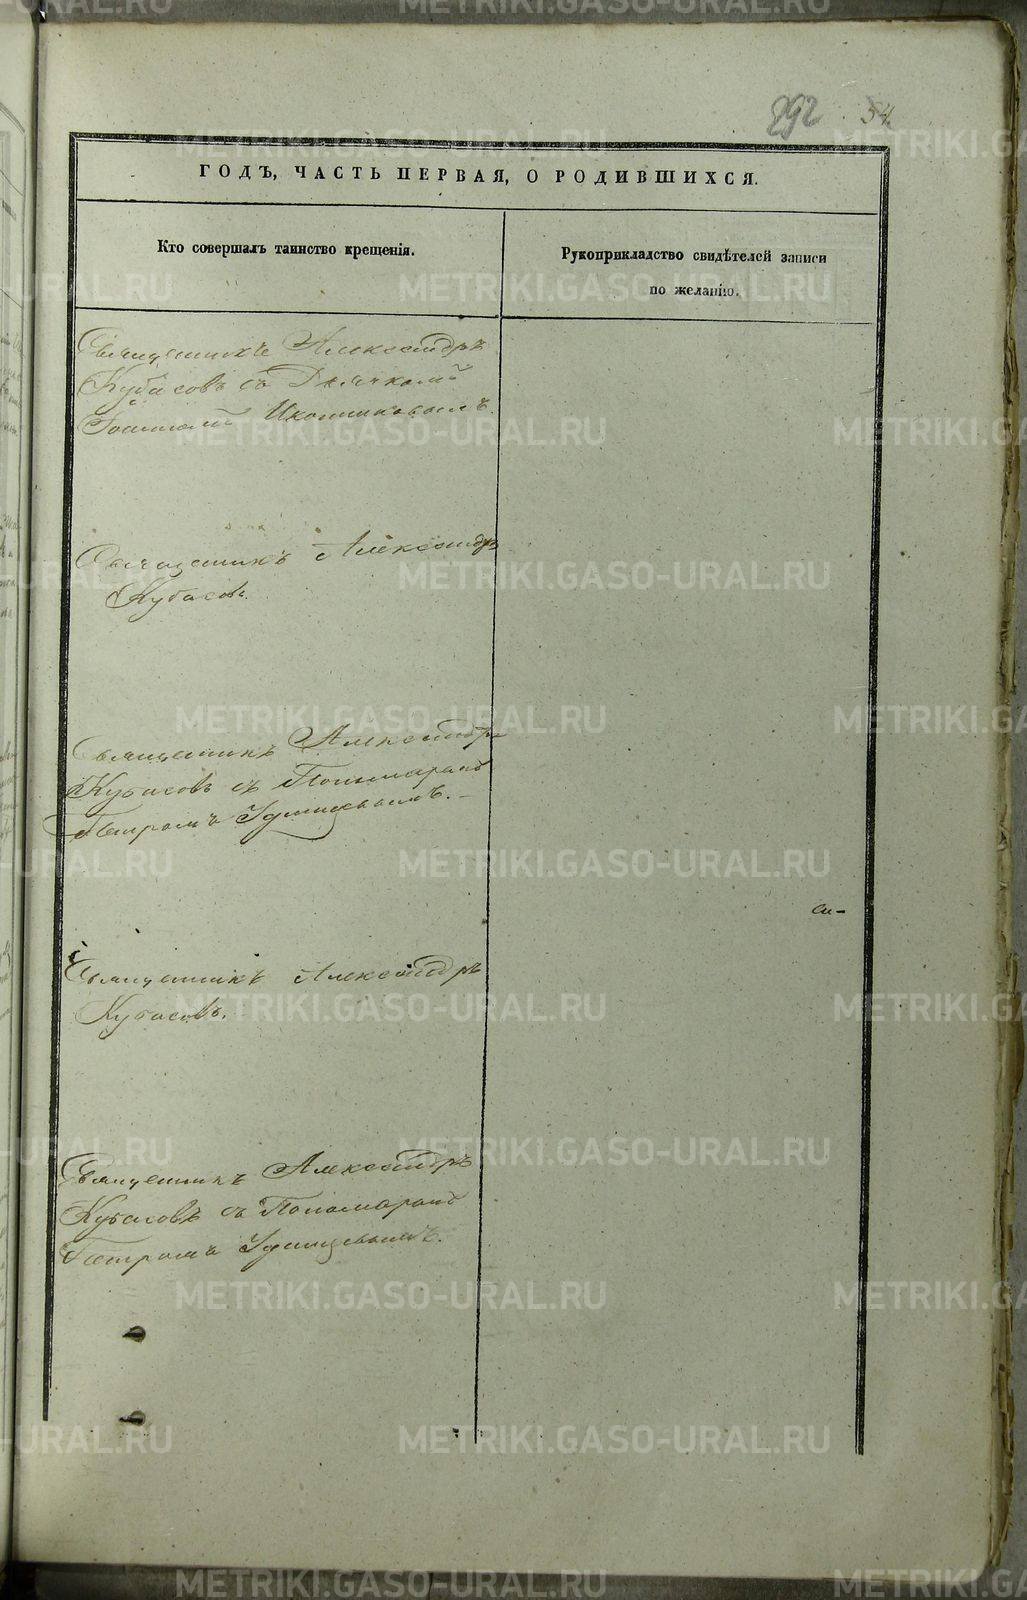 292 54
ГОДЪ, ЧАСТЬ ПЕРВАЯ, О РОДИВШИХСЯ.
Кто совершалъ таинство крещенія.
Рукоприкладство свидѣтелей записи
по желанію.
Священникъ Александръ
Кубасовъ съ Дьячкомъ
Иконниковымъ.
Священникъ Александръ
Кубасовъ.
Священникъ Александръ
Кубасовъ съ Пономаремъ
Петромъ Удинцевымъ.
си-
Священникъ Александръ
Кубасовъ.
Священникъ Александръ
Кубасовъ съ Пономаремъ
Петромъ Удинцевымъ.
METRIKI.GASO-URAL.RU